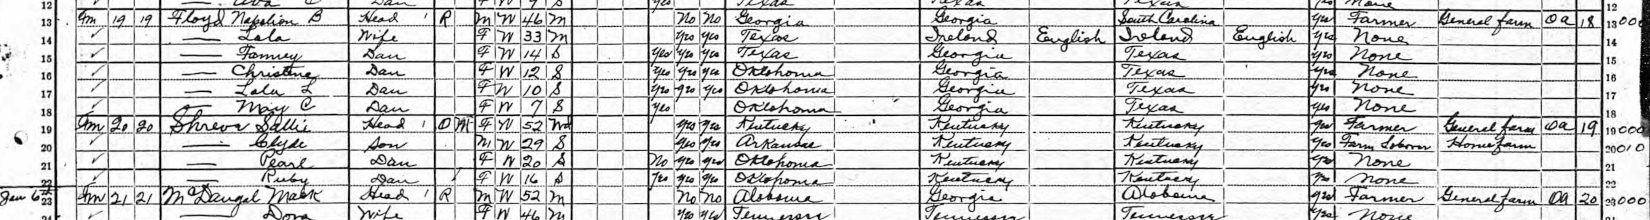 12 Dau F W 9 S yes Texas Texas Texas yes None 12
13 Fm 19 19 Floyd Napolion B Head 1 R M W 46 M No No Georgia Georgia South Carolina yes Farmer General farm Oa 18 13 000
14 — Lola Wife F W 33 M yes yes Texas Ireland English Ireland English yes None 14
15 — Fanney Dau F W 14 S yes yes yes Texas Georgia Texas yes None 15
16 — Christine Dau F W 12 S yes yes yes Oklahoma Georgia Texas yes None 16
17 — Lola L Dau F W 10 S yes yes yes Oklahoma Georgia Texas yes None 17
18 — May C Dau F W 7 S yes Oklahoma Georgia Texas yes None 18
19 Fm 20 20 Shreve Sallie Head 1 O M F W 52 Wd yes yes Kentucky Kentucky Kentucky yes Farmer General farm Oa 19 19 000
20 — Clyde Son M W 29 S yes yes Arkansas Kentucky Kentucky yes Farm Laborer Home farm 20 010
21 — Pearl Dau F W 20 S No yes yes Oklahoma Kentucky Kentucky yes None 21
22 — Ruby Dau F W 16 S yes yes yes Oklahoma Kentucky Kentucky yes None 22
Jan 6th 23 Fm 21 21 McDaugal Mack Head 1 R M W 52 M No No Alabama Georgia Alabama yes Farmer General farm Oa 20 23 000
— Dora Wife F W 46 M yes yes Tennessee Tennessee Tennessee yes None